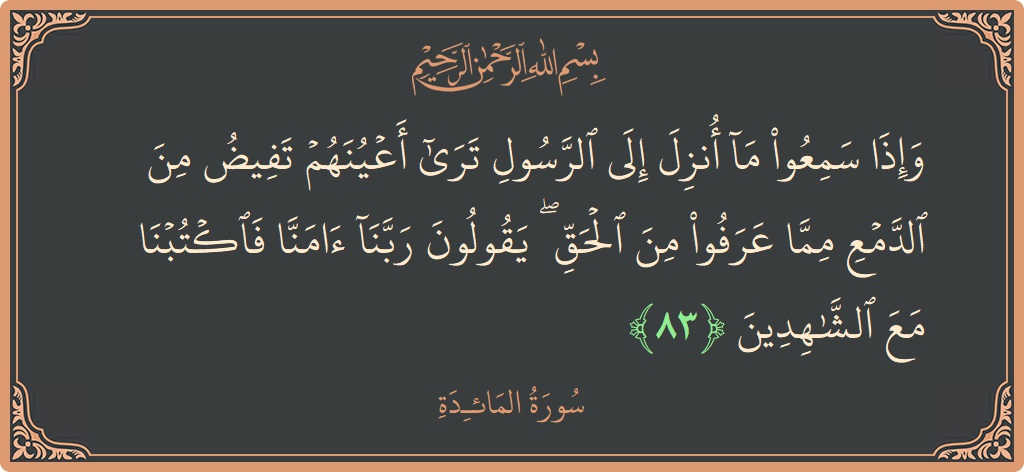 بِسْمِ اللهِ الرَّحْمٰنِ الرَّحِيْمِ
وَإِذَا سَمِعُوا۟ مَآ أُنزِلَ إِلَى ٱلرَّسُولِ تَرَىٰٓ أَعْيُنَهُمْ تَفِيضُ مِنَ
ٱلدَّمْعِ مِمَّا عَرَفُوا۟ مِنَ ٱلْحَقِّ ۖ يَقُولُونَ رَبَّنَآ ءَامَنَّا فَٱكْتُبْنَا
مَعَ ٱلشَّـٰهِدِينَ ﴿٨٣﴾
سُورَةُ المَائـِدَةِ